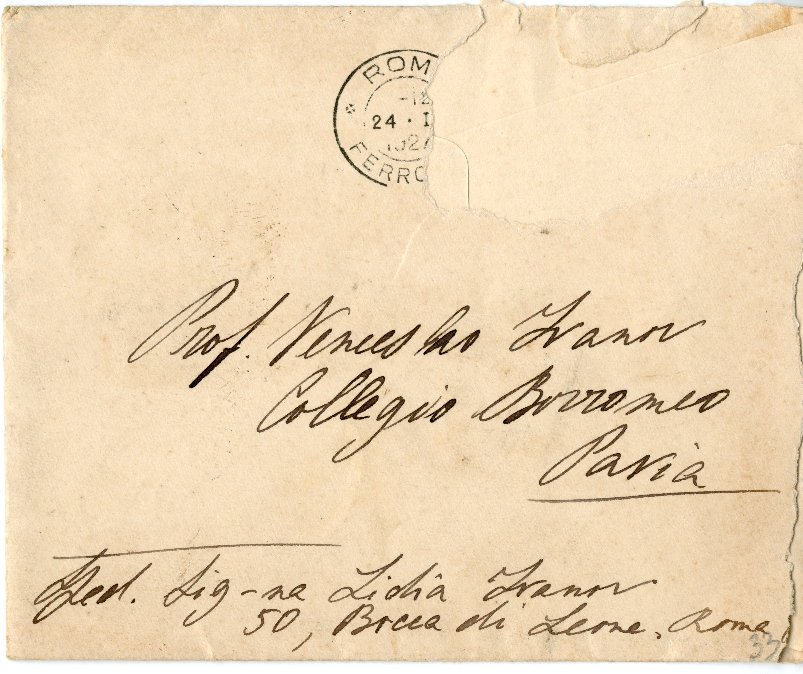 ROM
24 · I
FERRO
Prof. Venceslao Ivanov
Collegio Borromeo
Pavia
Sped. Sig-na Lidia Ivanov
50, Bocca di Leone. Roma
33